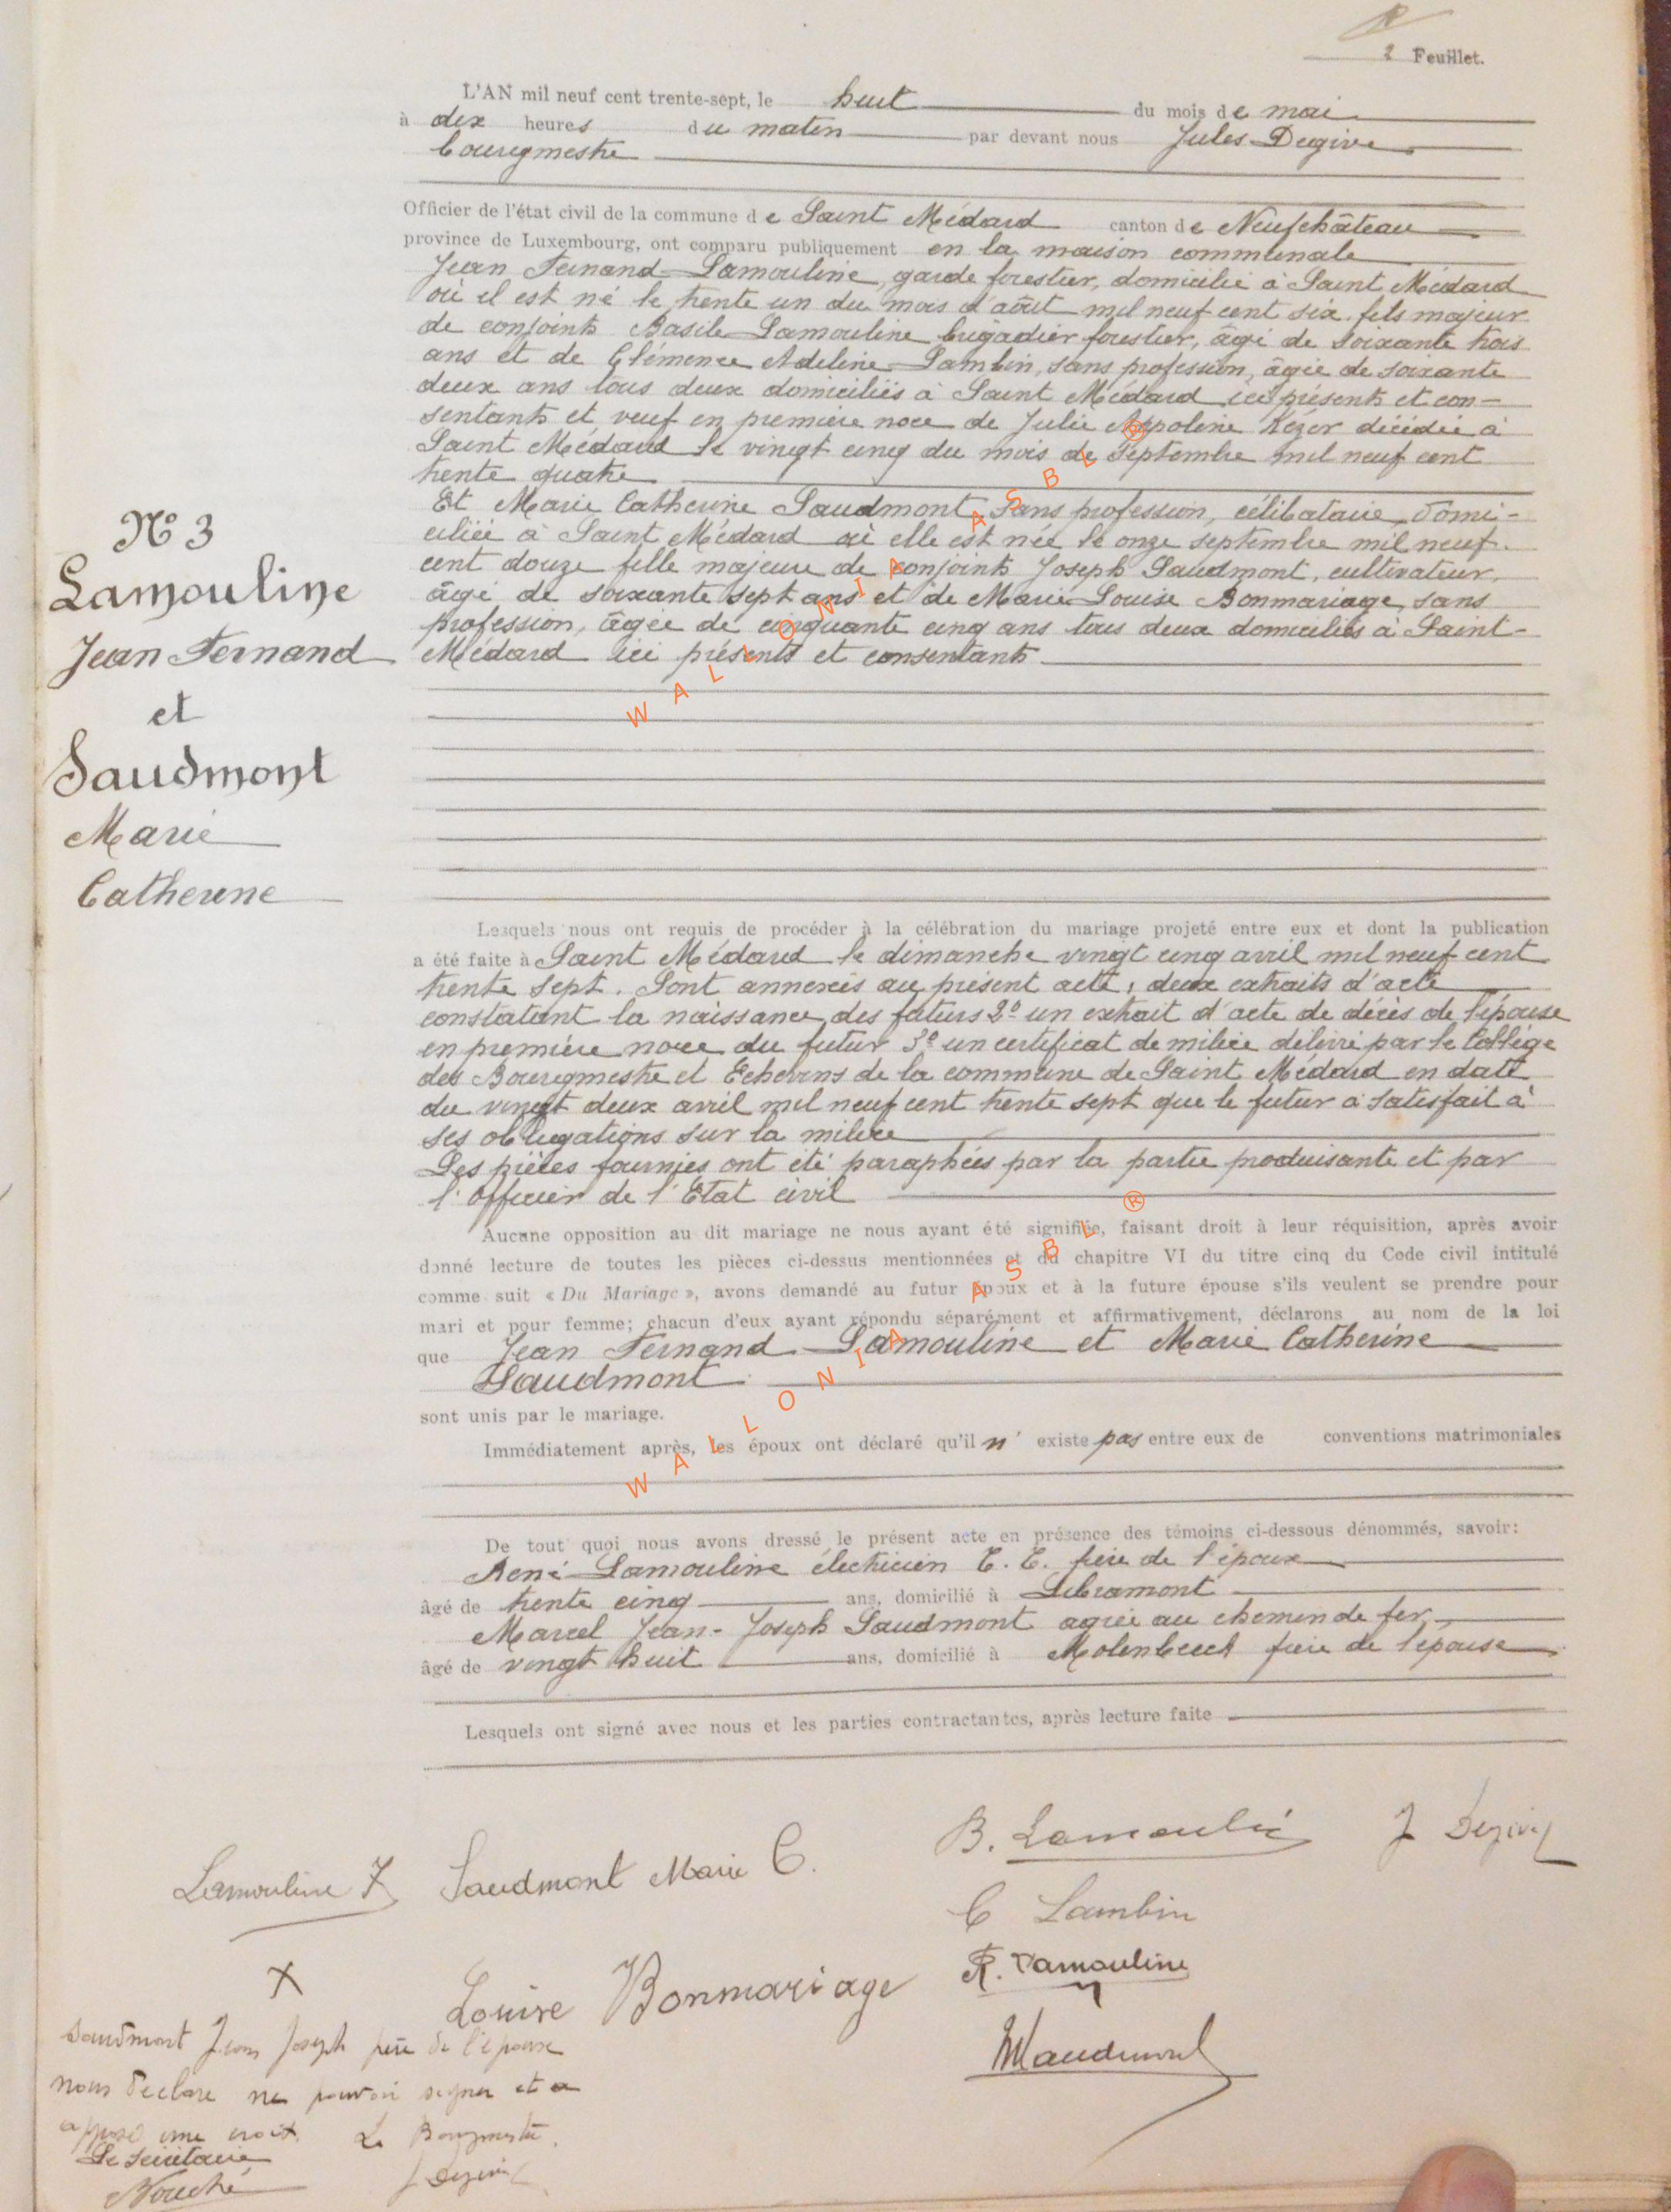 2 Feuillet.
L'AN mil neuf cent trente-sept, le huit du mois de mai
à dix heures du matin par devant nous Jules Degive
bourgmestre
Officier de l'état civil de la commune de Saint Médard canton de Neufchâteau
province de Luxembourg, ont comparu publiquement en la maison communale
Jean Fernand Lamouline, garde forestier, domicilié à Saint Médard
où il est né le trente un du mois d'août mil neuf cent six, fils majeur
de conjoints Basile Lamouline brigadier forestier, âgé de soixante trois
ans et de Clémence Adeline Lambin, sans profession, âgée de soixante
deux ans tous deux domiciliés à Saint Médard ici présents et con-
sentants et veuf en première noce de Julie Appoline Kézer décédée à
Saint Médard le vingt cinq du mois de septembre mil neuf cent
trente quatre
Et Marie Catherine Saudmont, sans profession, célibataire, domi-
ciliée à Saint Médard où elle est née le onze septembre mil neuf
cent douze fille majeure de conjoints Joseph Saudmont, cultivateur,
âgé de soixante sept ans et de Marie Louise Bonmariage, sans
profession, âgée de cinquante cinq ans tous deux domiciliés à Saint-
Médard ici présents et consentants
N° 3
Lamouline
Jean Fernand
et
Saudmont
Marie
Catherine
Lesquels nous ont requis de procéder à la célébration du mariage projeté entre eux et dont la publication
a été faite à Saint Médard le dimanche vingt cinq avril mil neuf cent
trente sept. Sont annexés au présent acte, deux extraits d'acte
constatant la naissance des futurs 2° un extrait d'acte de décès de l'épouse
en première noce du futur 3° un certificat de milice délivré par le Collège
des Bourgmestre et Echevins de la commune de Saint Médard en date
du vingt deux avril mil neuf cent trente sept que le futur a satisfait à
ses obligations sur la milice
Les pièces fournies ont été paraphées par la partie produisante et par
l'Officier de l'Etat civil
Aucune opposition au dit mariage ne nous ayant été signifiée, faisant droit à leur réquisition, après avoir
donné lecture de toutes les pièces ci-dessus mentionnées et du chapitre VI du titre cinq du Code civil intitulé
comme suit « Du Mariage », avons demandé au futur époux et à la future épouse s'ils veulent se prendre pour
mari et pour femme; chacun d'eux ayant répondu séparément et affirmativement, déclarons au nom de la loi
que Jean Fernand Lamouline et Marie Catherine
Saudmont
sont unis par le mariage.
Immédiatement après, les époux ont déclaré qu'il n' existe pas entre eux de conventions matrimoniales
De tout quoi nous avons dressé le présent acte en présence des témoins ci-dessous dénommés, savoir:
René Lamouline électricien E. E. frère de l'époux
âgé de trente cinq ans, domicilié à Libramont
Marcel Jean-Joseph Saudmont agréé au chemin de fer,
âgé de vingt huit ans, domicilié à Molenbeek frère de l'épouse
Lesquels ont signé avec nous et les parties contractantes, après lecture faite
B. Lamouline J Degive
Lamouline F Saudmont Marie C.
C Lambin
X
Louise Bonmariage
R. Lamouline
MSaudmont
Saudmont Jean Joseph père de l'épouse
nous déclare ne pouvoir signer et a
apposé une croix. Le Bourgmestre
Le secrétaire
J Degive
Nouché
WALLONIA ASBL ®
WALLONIA ASBL ®